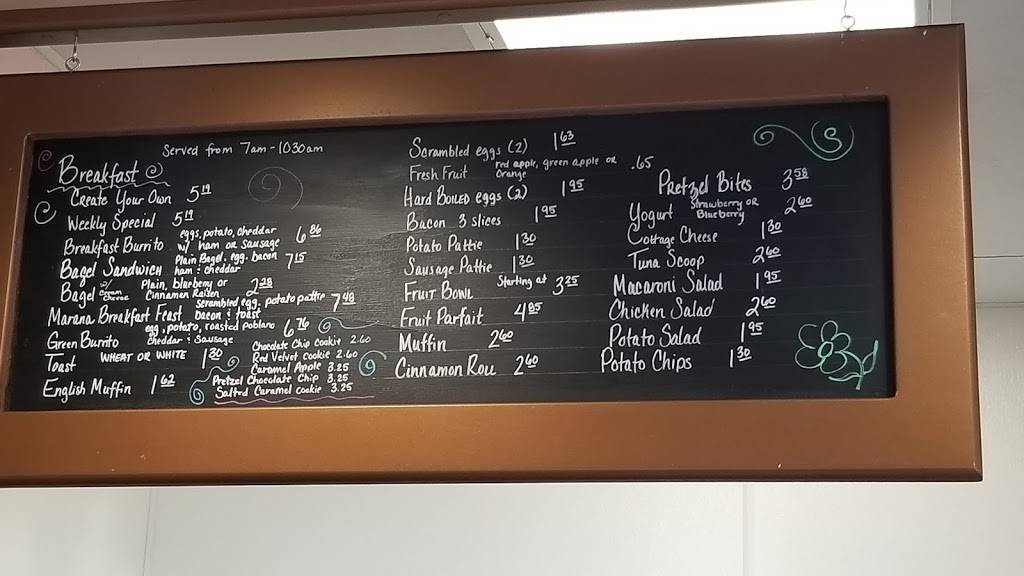 Served from 7am-1030am
Breakfast
Create Your Own 5 19
Weekly Special 5 19
Breakfast Burrito eggs, potato, cheddar w/ ham or sausage 6 86
Bagel Sandwich Plain Bagel, egg, bacon ham & cheddar 7 15
Bagel w/ Cream Cheese Plain, blueberry or Cinnamon Raisen 2 28
Marana Breakfast Feast Scrambled egg, potato pattie bacon & toast 7 48
Green Burrito egg, potato, roasted poblano cheddar & sausage 6 76
Toast WHEAT OR WHITE 1 30
English Muffin 1 62
Chocolate Chip cookie 2.60
Red Velvet cookie 2.60
Caramel Apple 3.25
Pretzel Chocolate Chip 3.25
Salted Caramel cookie 3.25
Scrambled eggs (2) 1 63
Fresh Fruit red apple, green apple or orange .65
Hard Boiled eggs (2) 1 95
Bacon 3 slices 1 95
Potato Pattie 1 30
Sausage Pattie 1 30
Fruit Bowl Starting at 3 25
Fruit Parfait 4 85
Muffin 2 60
Cinnamon Roll 2 60
Pretzel Bites 3 58
Yogurt Strawberry or Blueberry 2 60
Cottage Cheese 1 30
Tuna Scoop 2 60
Macaroni Salad 1 95
Chicken Salad 2 60
Potato Salad 1 95
Potato Chips 1 30